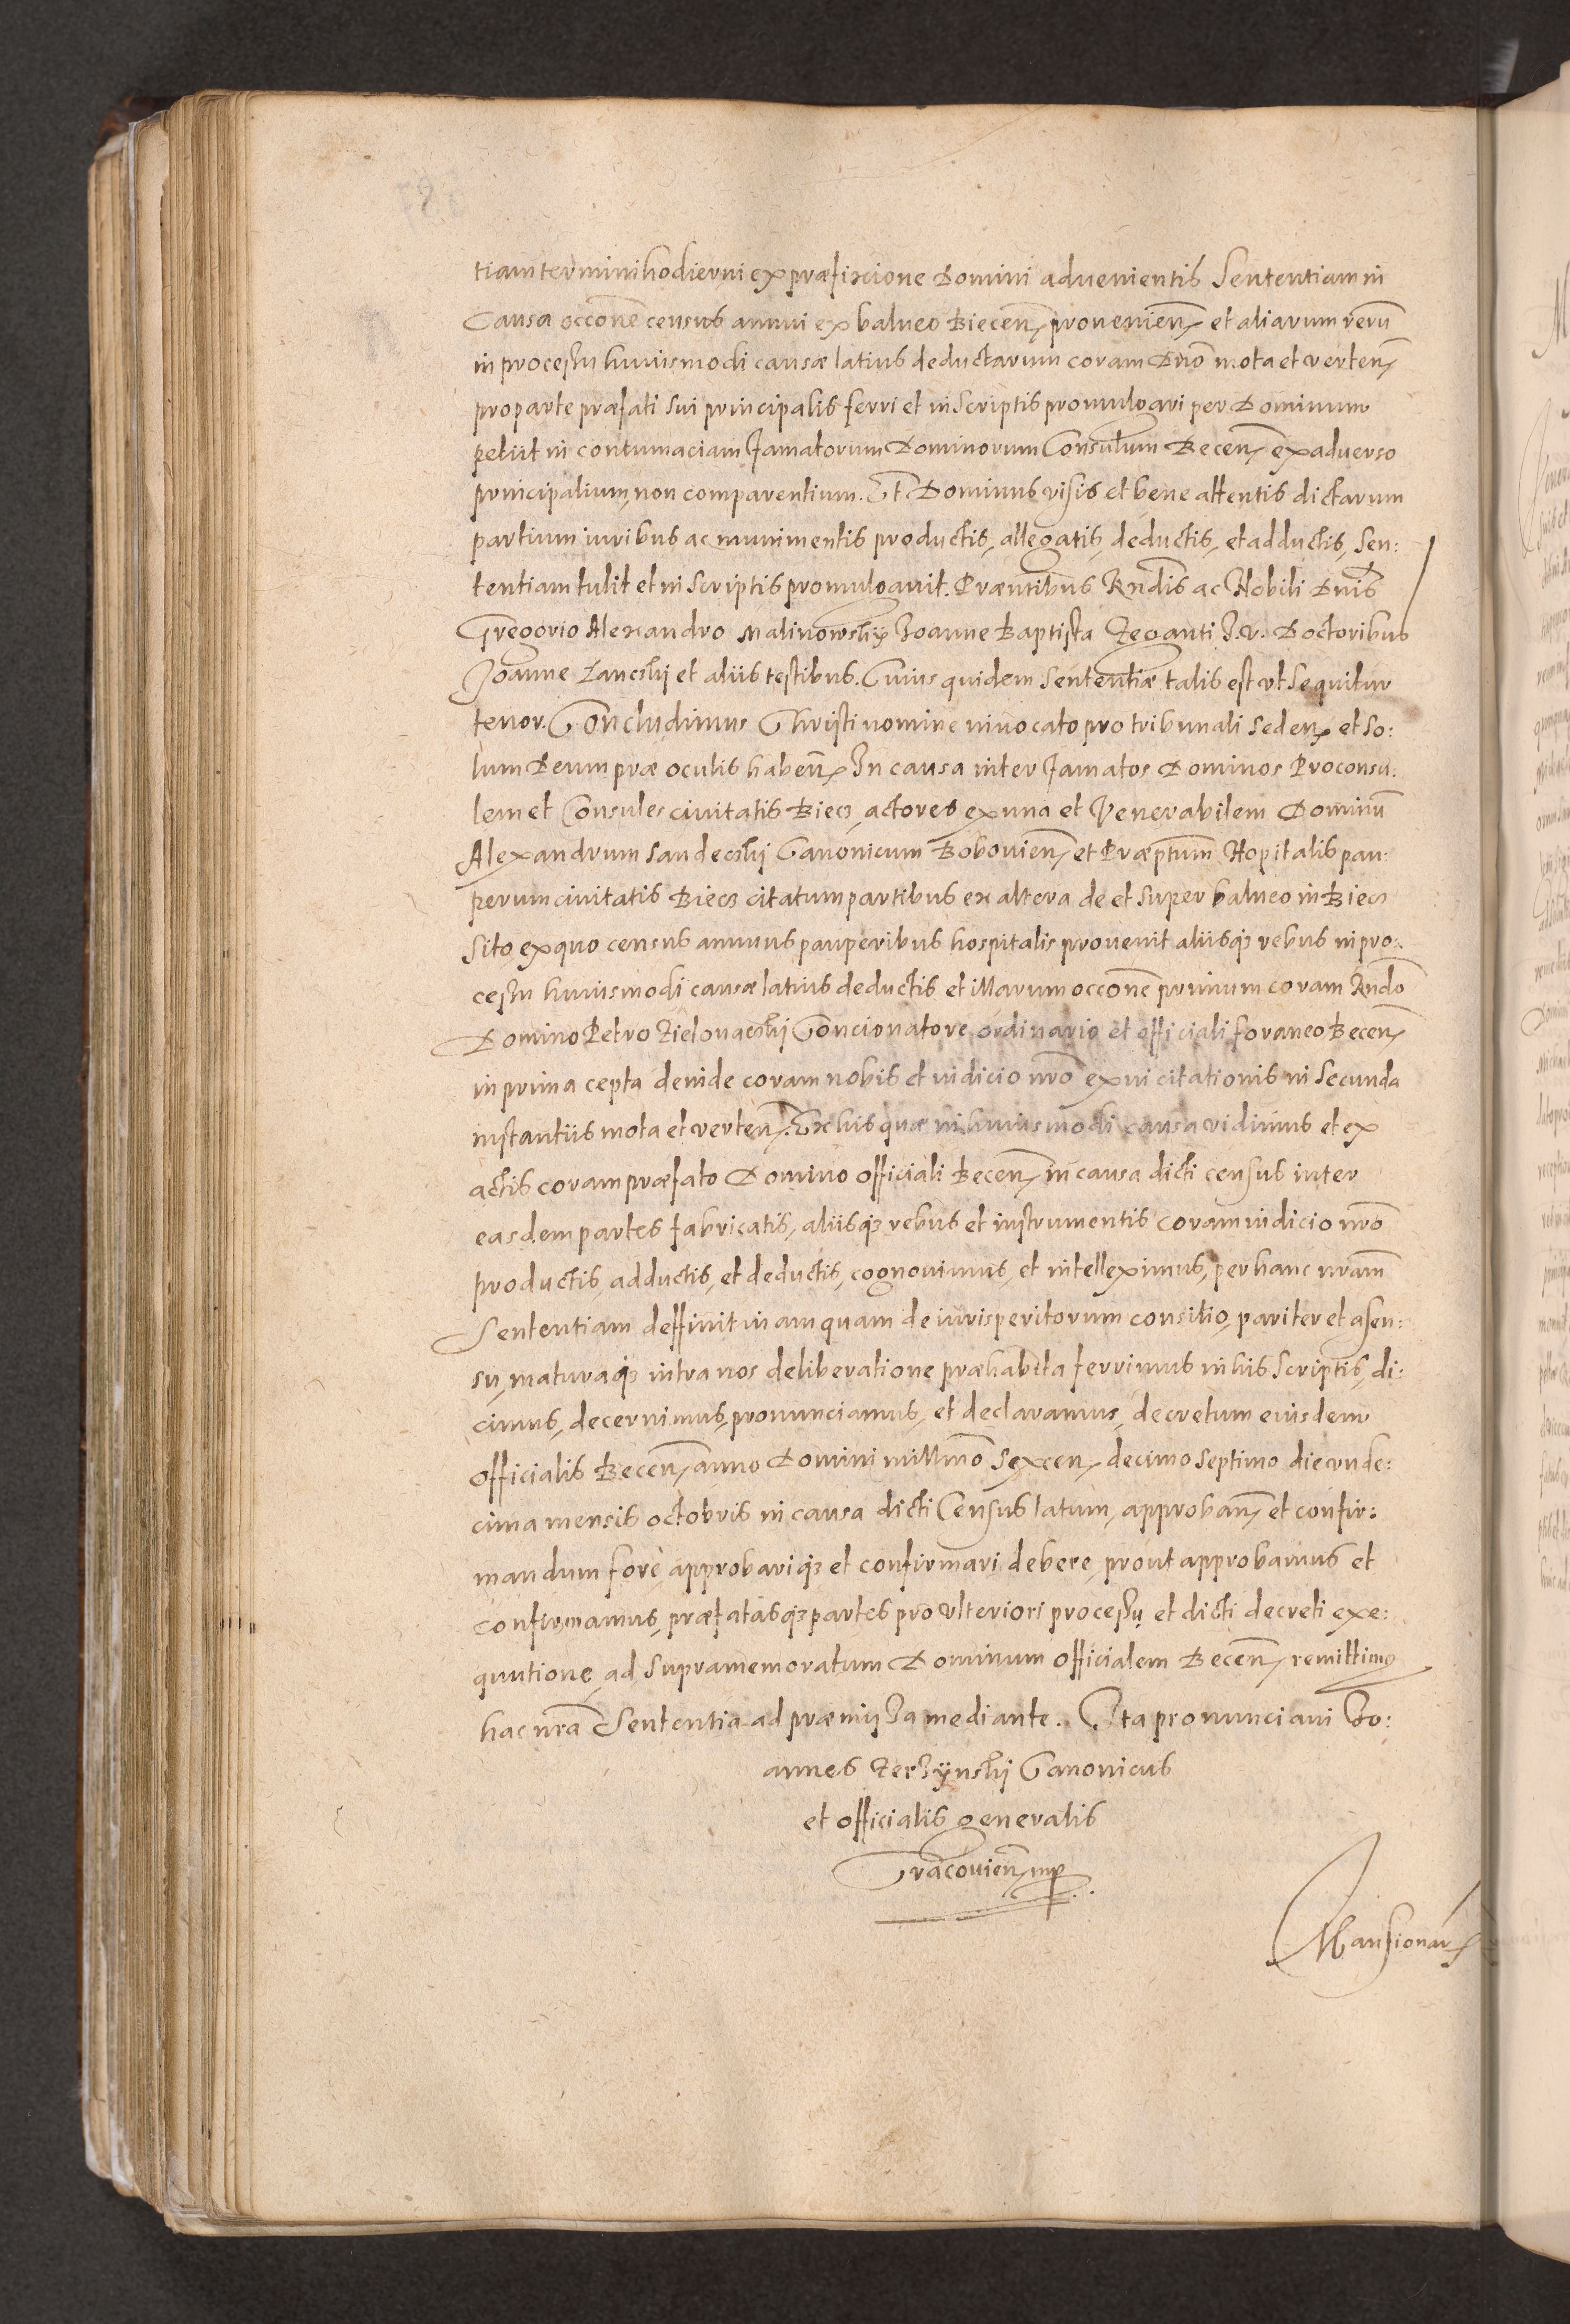 tiam termini hodierni ex præfixione Domini advenientis Sententiam in
Causa occõne census annui ex balneo Biecen̄ provenien̄ et aliarum rerū
in processu huiusmodi causæ latius deductarum coram Dnō mota et verten̄
pro parte præfati sui principalis ferri et in scriptis promulgari per Dominum
petiit in contumaciam famatorum Dominorum Consulum Becen̄ ex adverso
principalium, non comparentium. Et Dominus visis et bene attentis dictarum
partium iuribus ac munimentis productis, allegatis, deductis, et adductis, Sen:
tentiam tulit et in Scriptis promulgavit. Præntibus Rndis ac Nobili Dnis
Gregorio Alexandro Malinowskij Joanne Baptista Zeganti J. v. Doctoribus
Joanne Lancskij et aliis testibus. Cuius quidem Sententiæ talis est vt Sequitur
tenor. Concludimus Christi nomine invocato pro tribunali seden̄ et so:
lum Deum præ oculis haben̄ In causa inter famatos Dominos Proconsu:
lem et Consules civitatis Biecz, actores ex una et Venerabilem Dominū
Alexandrum Sandeczkij Canonicum Bobovien̄ et Præptum Hopitalis pau:
perum civitatis Biecz citatum partibus ex altera de et super balneo in Biecz
sito ex quo census annuus pauperibus hospitalis provenit aliisq̨ rebus in pro:
cessu huiusmodi causæ latius deductis et illarum occõne primum coram Rndo
Domino Petro Zielonaczkij Concionatore ordinario et officiali foraneo Becen̄
in prima cepta deinde coram nobis et iudicio nrō ex vi citationis in Secunda
instantiis mota et verten̄. Ex his quæ in huiusmodi causa vidimus et ex
actis coram præfato Domino Officiali Becen̄ in causa dicti census inter
easdem partes fabricatis, aliisq̨ rebus et instrumentis coram iudicio nrō
productis, adductis, et deductis, cognovimus, et intelleximus, per hanc nram̄
Sententiam deffinitivam quam de iurisperitorum consilio, pariter et asen:
su, maturaq̨ intra nos deliberatione præhabita ferrimus in his scriptis, di:
cimus, decernimus, pronunciamus, et declaramus, decretum eiusdem
Officialis Becen̄ anno Domini millmō Sexcen̄ decimo Septimo die vnde:
cima mensis octobris in causa dicti Census latum, approban̄ et confir:
mandum fore, approbariq̨ et confirmari debere, prout approbamus et
confirmamus, præfatasq̨ partes pro vlteriori processu et dicti decreti exe:
qutione, ad supramemoratum Dominum Officialem Becen̄ remittimꝰ
hac nrā Sententia ad præmissa mediante. Ita pronunciavi Jo:
annes Zerzijnskij Canonicus
et officialis generalis
Cracovien̄ mp
Mansionar